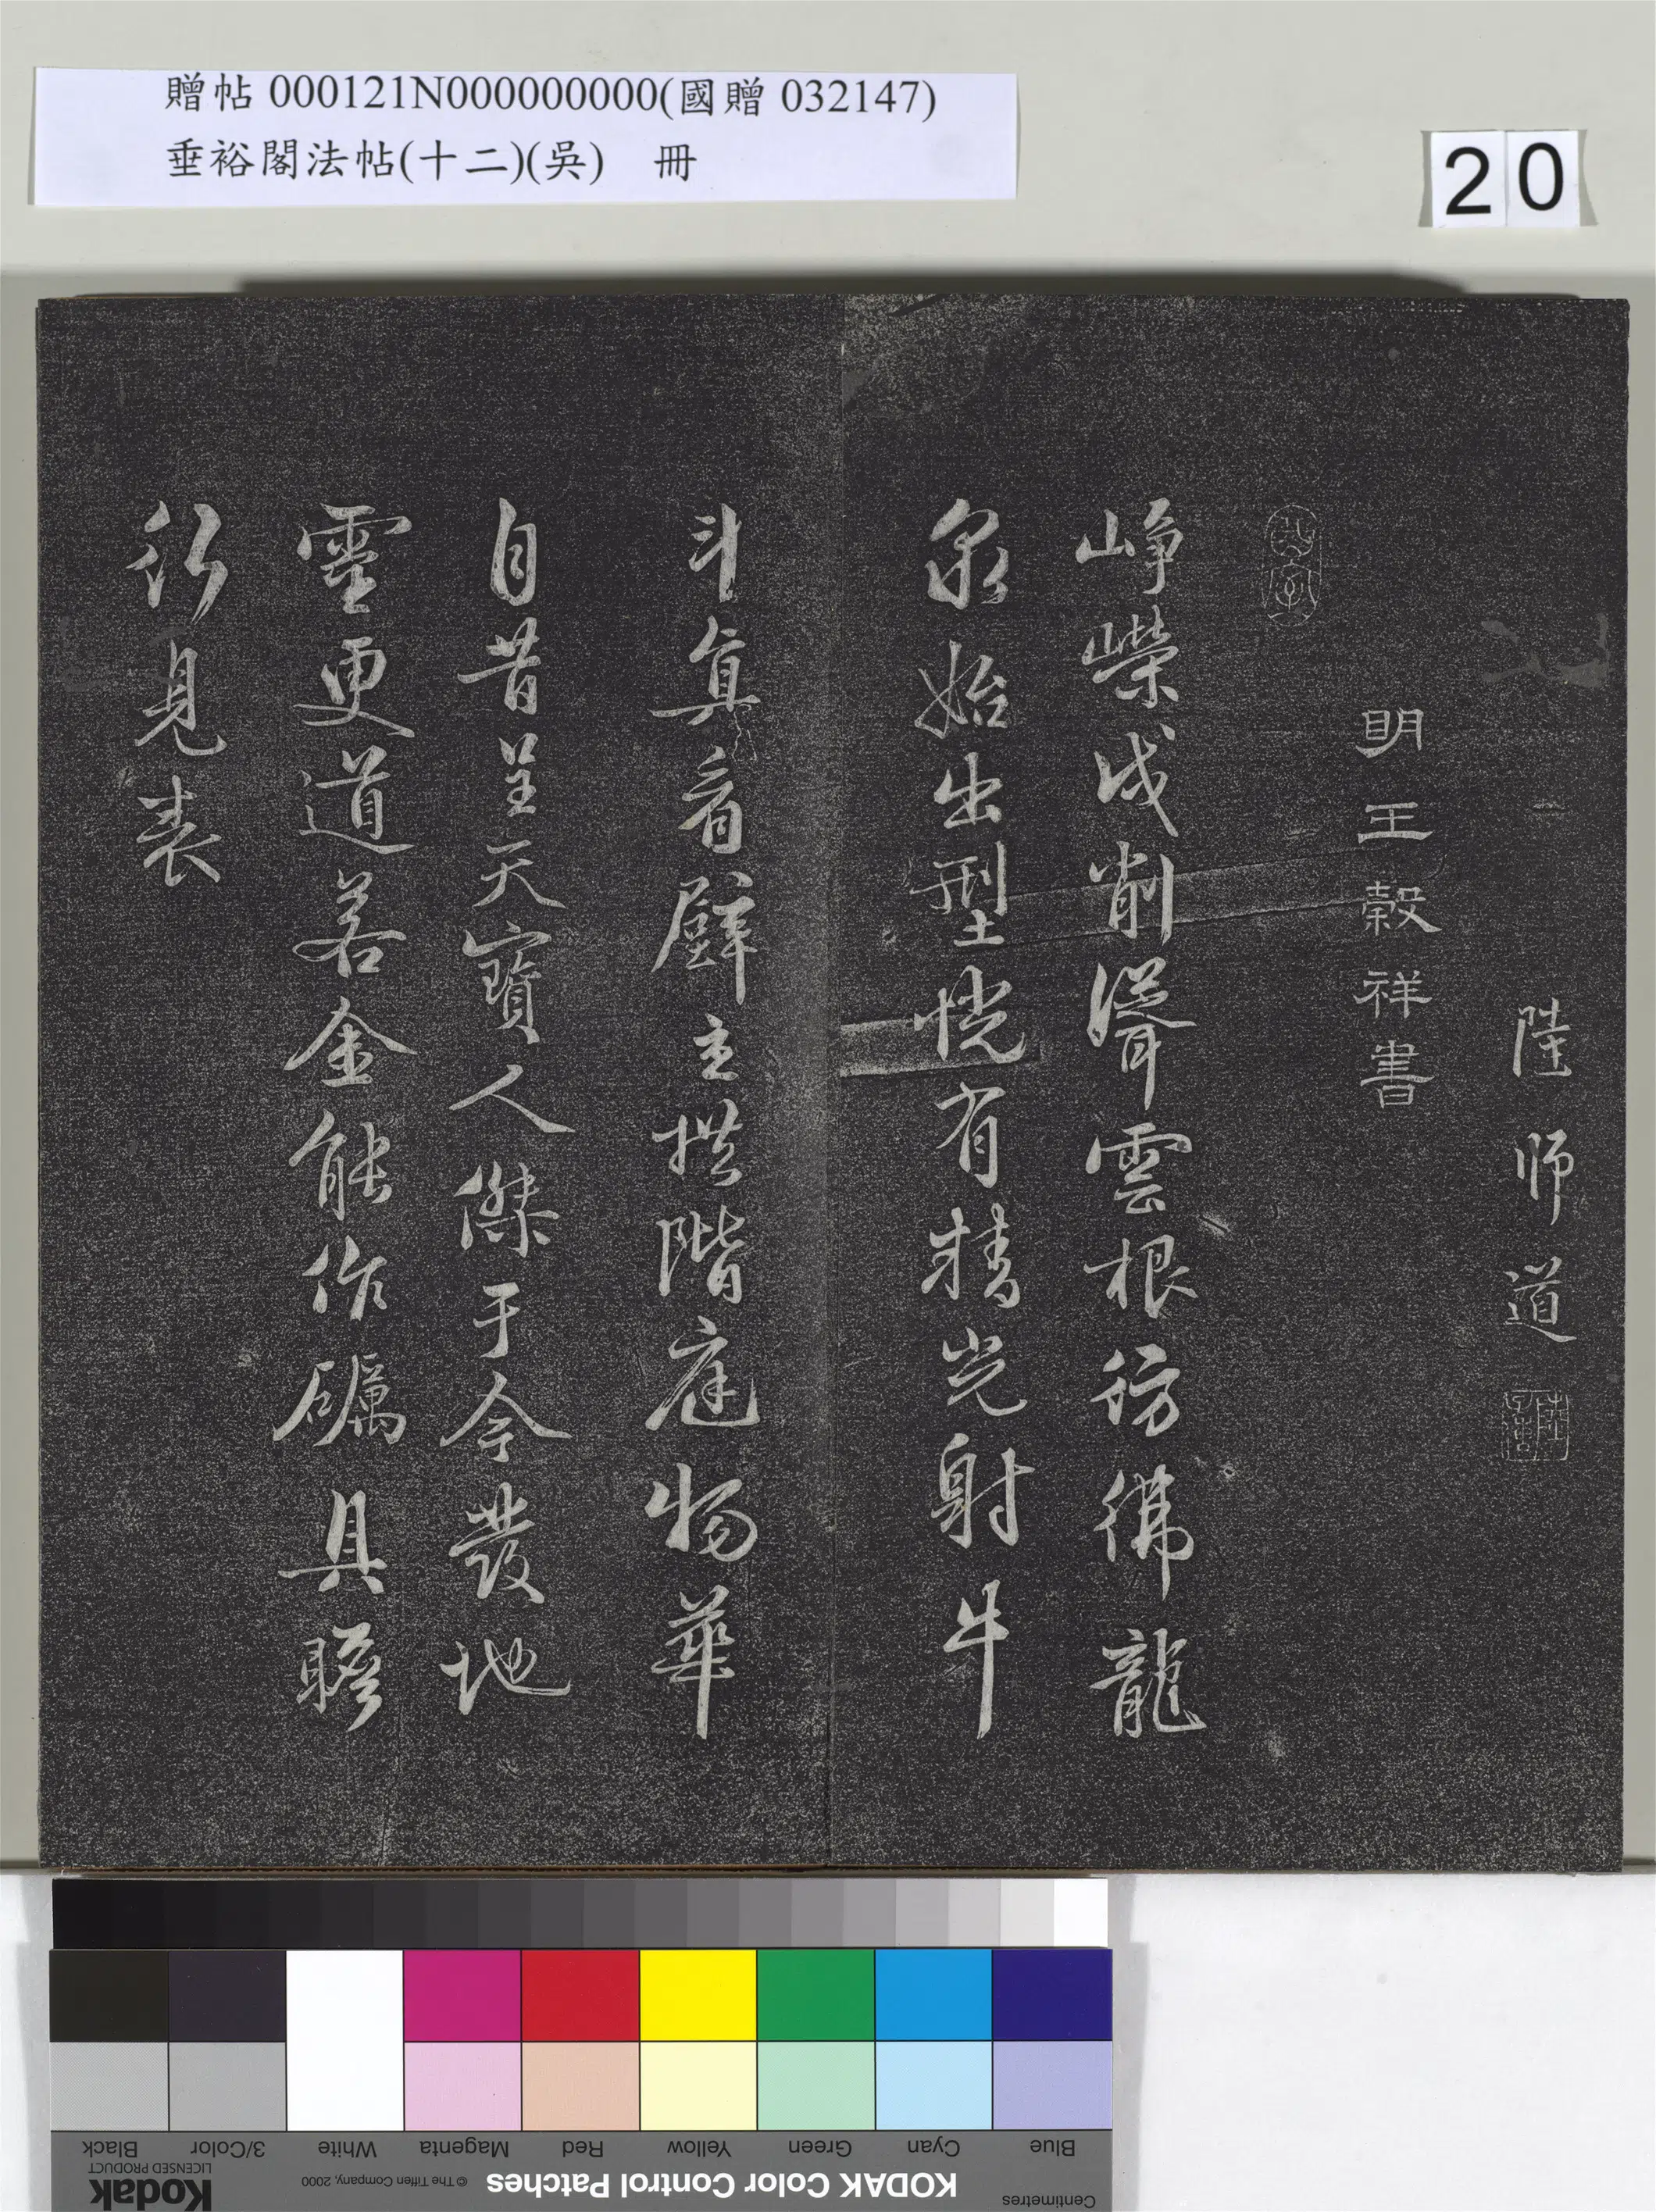 贈帖 000121N000000000(國贈 032147)
垂裕閣法帖(十二)(吳) 冊
20
陸師道
明王穀祥書
崢嶸戌削聳雲根彷彿龍
泉始出型恍有精光射牛
斗真看壁立拱階庭物華
自昔呈天寶人傑于今發地
靈更道若金能作礪具瞻
行見表
Blue
Cyan
Green
Yellow
Red
Magenta
White
3/Color
Black
Centimetres
KODAK Color Control Patches
© The Tiffen Company, 2000
Kodak
LICENSED PRODUCT